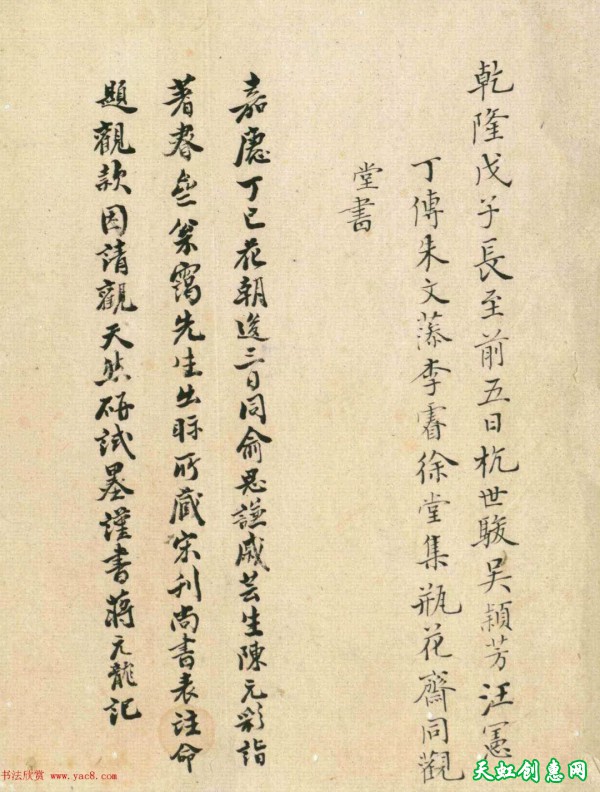 乾隆戊子長至前五日杭世駿吳穎芳汪憲
丁傳朱文藻李睿徐堂集瓶花齋同觀
堂書
嘉慶丁巳花朝後三日同俞思謙戚芸生陳元彩詣
著書齋篆窩先生出眎所藏宋刊尚書表注命
題觀款因請觀天然研試墨謹書蔣元龍記
书法欣赏 www.yac8.com
天虹创意网